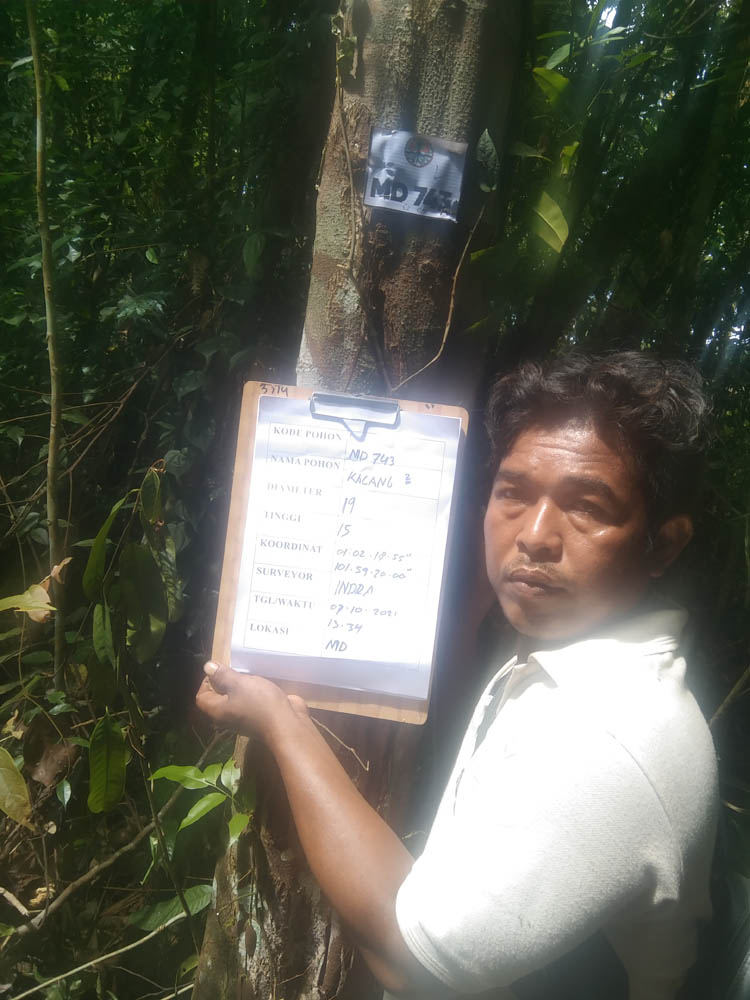 MD 743
3774
KODE POHON MD 743
NAMA POHON KACANG ²
DIAMETER 19
TINGGI 15
KOORDINAT 01·02·18·55"
101·59·20·00"
SURVEYOR INDRA
TGL/WAKTU 07·10·2021
13·34
LOKASI MD